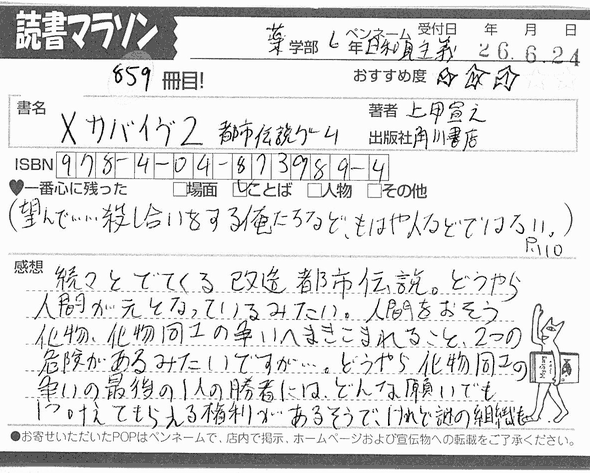 読書マラソン
薬学部 6年 ペンネーム 日和見主義 受付日 年 月 日 26.6.24
859 冊目! おすすめ度 ☆☆☆
書名 メサバイヴ2 都市伝説ゲーム
著者 上甲宣之
出版社 角川書店
ISBN 978-4-04-873989-4
♥一番心に残った □場面 ☑ことば □人物 □その他
(望んで……殺し合いをする俺たちなど、もはや人などではない。)
P.110
感想 続々とでてくる改造都市伝説。どうやら
人間が元となっているみたい。人間をおそう
化物、化物同士の争いへまきこまれること、2つの
危険があるみたいですが…。どうやら化物同士の
争いの最後の1人の勝者には、どんな願いでも
叶えてもらえる権利があるそうで、けれど謎の組織も
●お寄せいただいたPOPはペンネームで、店内で掲示、ホームページおよび宣伝物への転載をご了承ください。